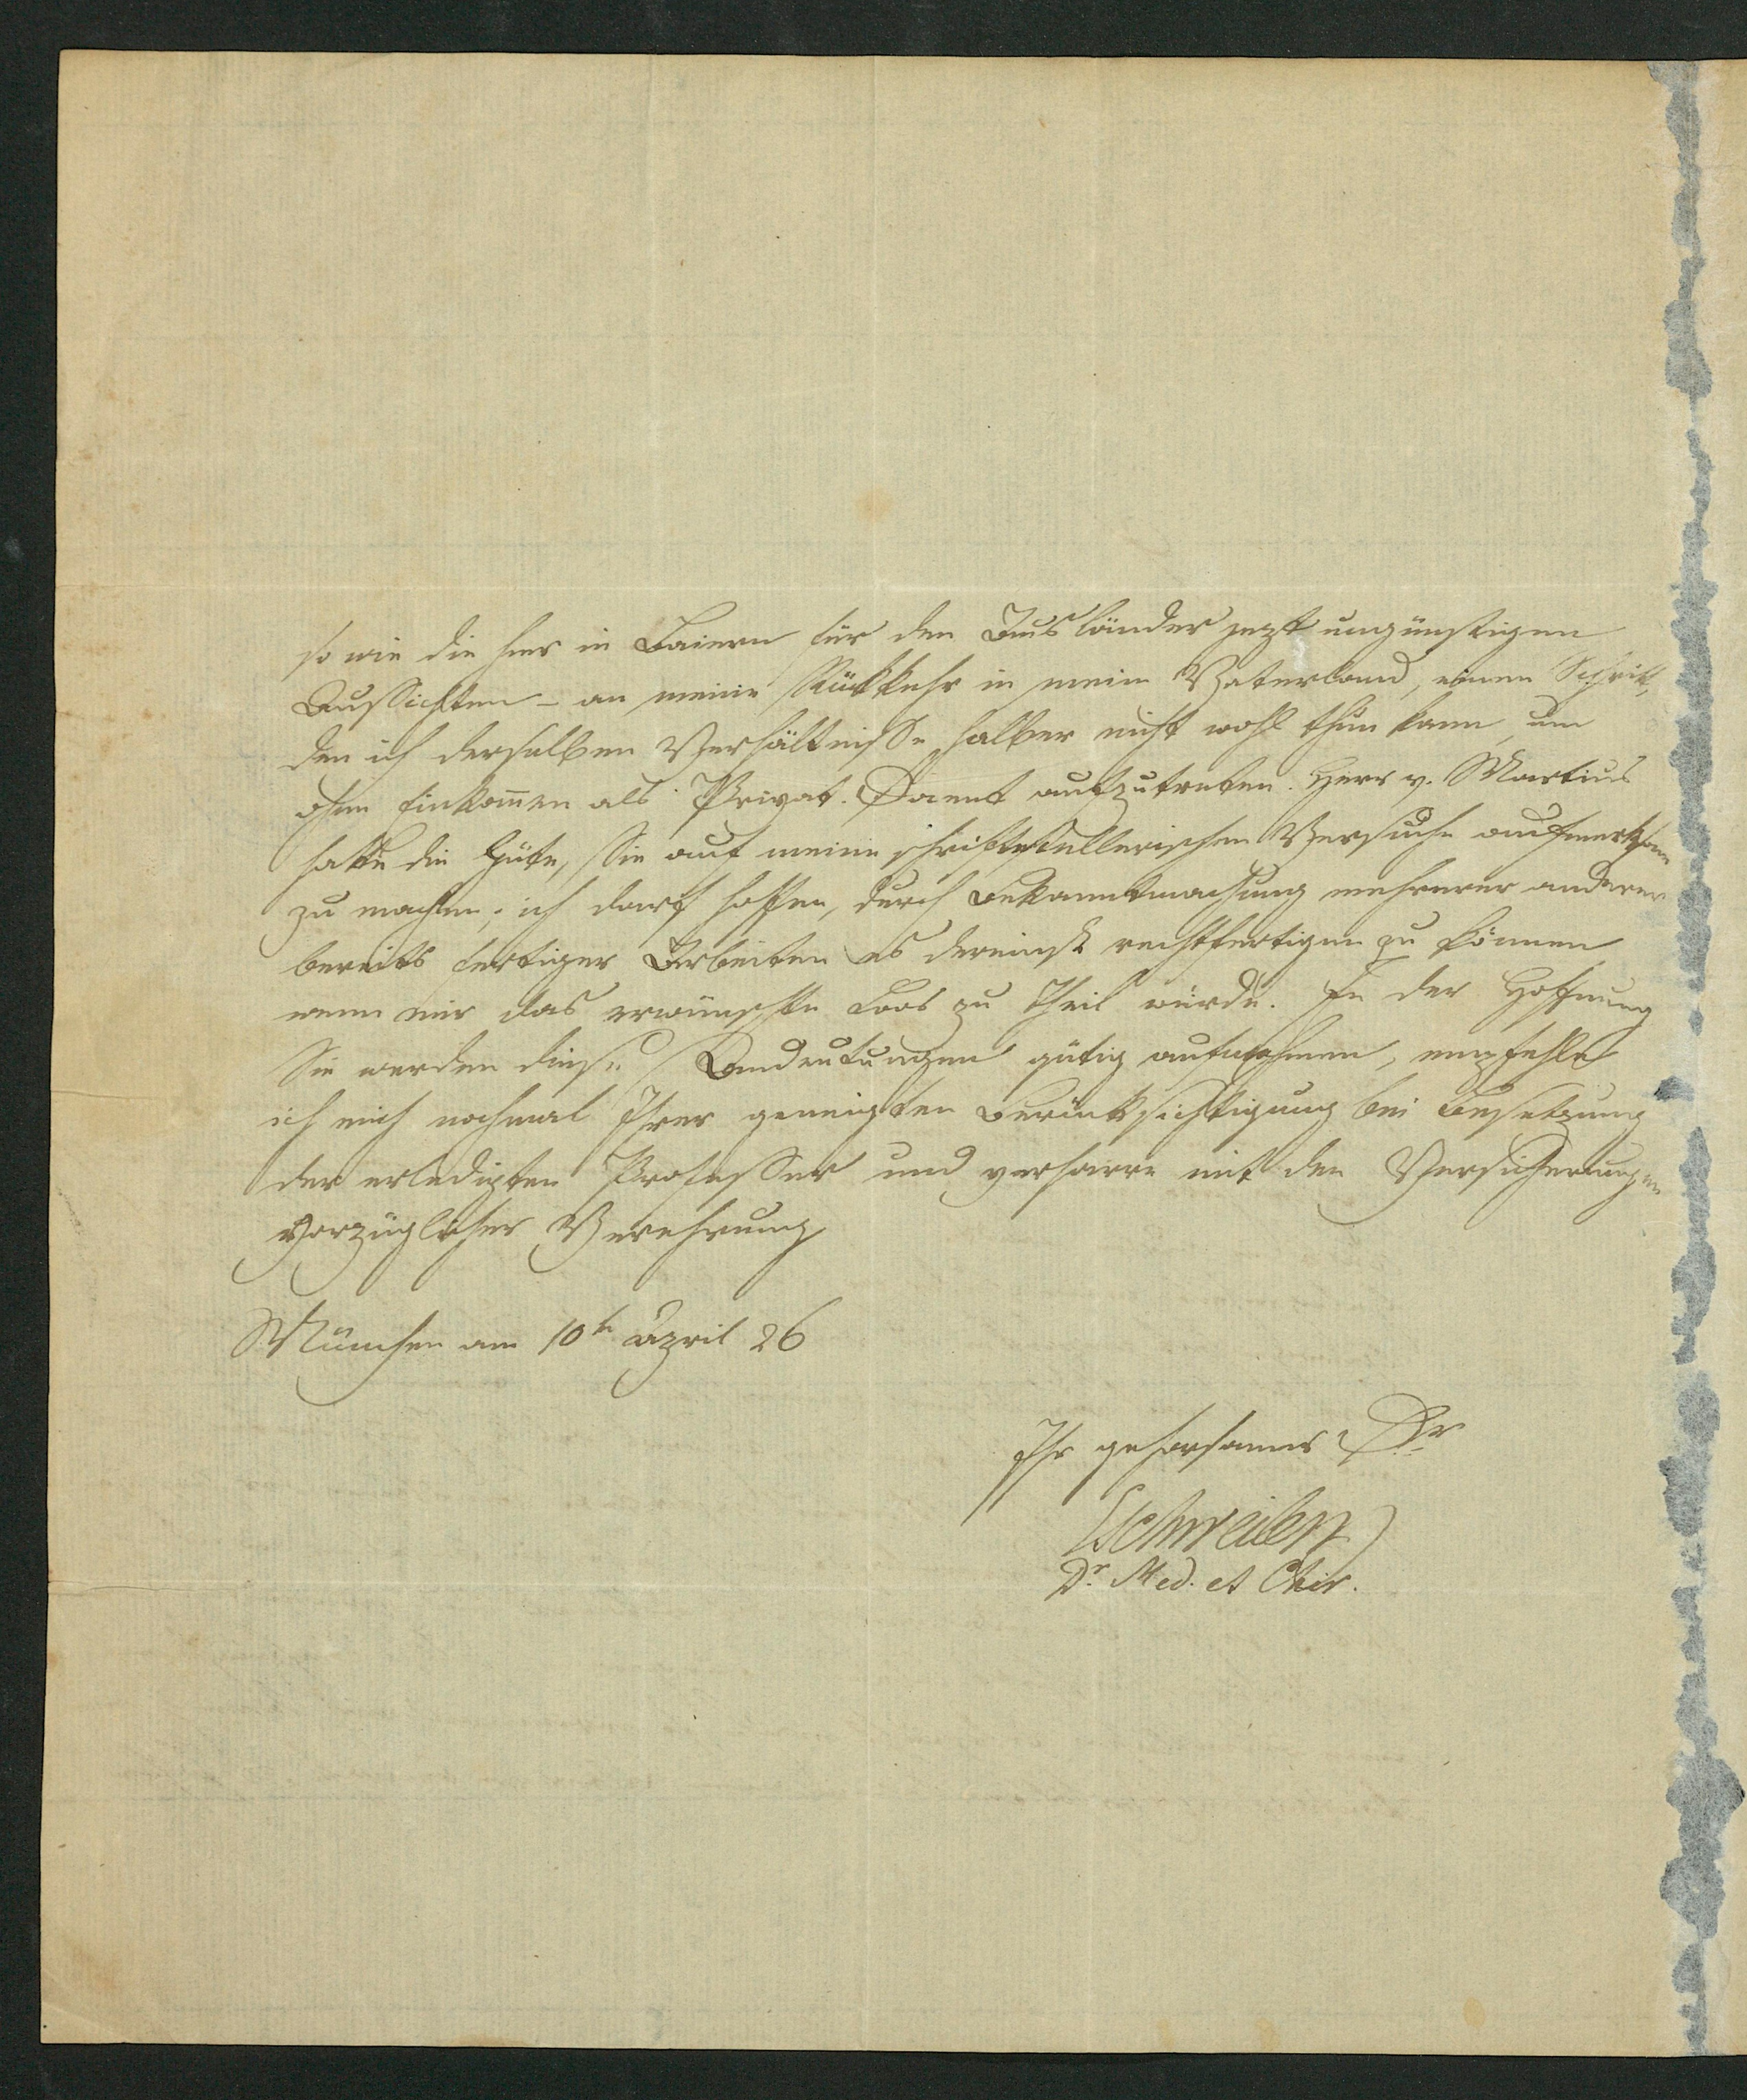 so wie die hier in Baiern für den Ausländer jezt ungünstigen
Aussichten – an meine Rückkehr in mein Vaterland, einen Schritt,
den ich derselben Verhältnisse halber nicht wohl thun kann, um
ohne Einkom̄en als Privat-Docent aufzutreten. Herr v. Martius
hatte die Güte, Sie auf meine schriftstellerischen Versuche aufmerksam
zu machen; ich darf hoffen, durch Bekanntmachung mehrerer anderer
bereits fertiger Arbeiten es dereinst rechtfertigen zu können
wenn mir das erwünschte Loos zu Theil würde. In der Hoffnung
Sie werden diese Andeutungen gütig aufnehmen, empfehle
ich mich nochmal Ihrer geneigten Berücksichtigung bei Besetzung
der erledigten Professur und verharre mit den Versicherungen
vorzüglicher Verehrung
München am 10t April 26
Ihr gehorsamer Dr
Eschweiler
Dr. Med. et Chir.